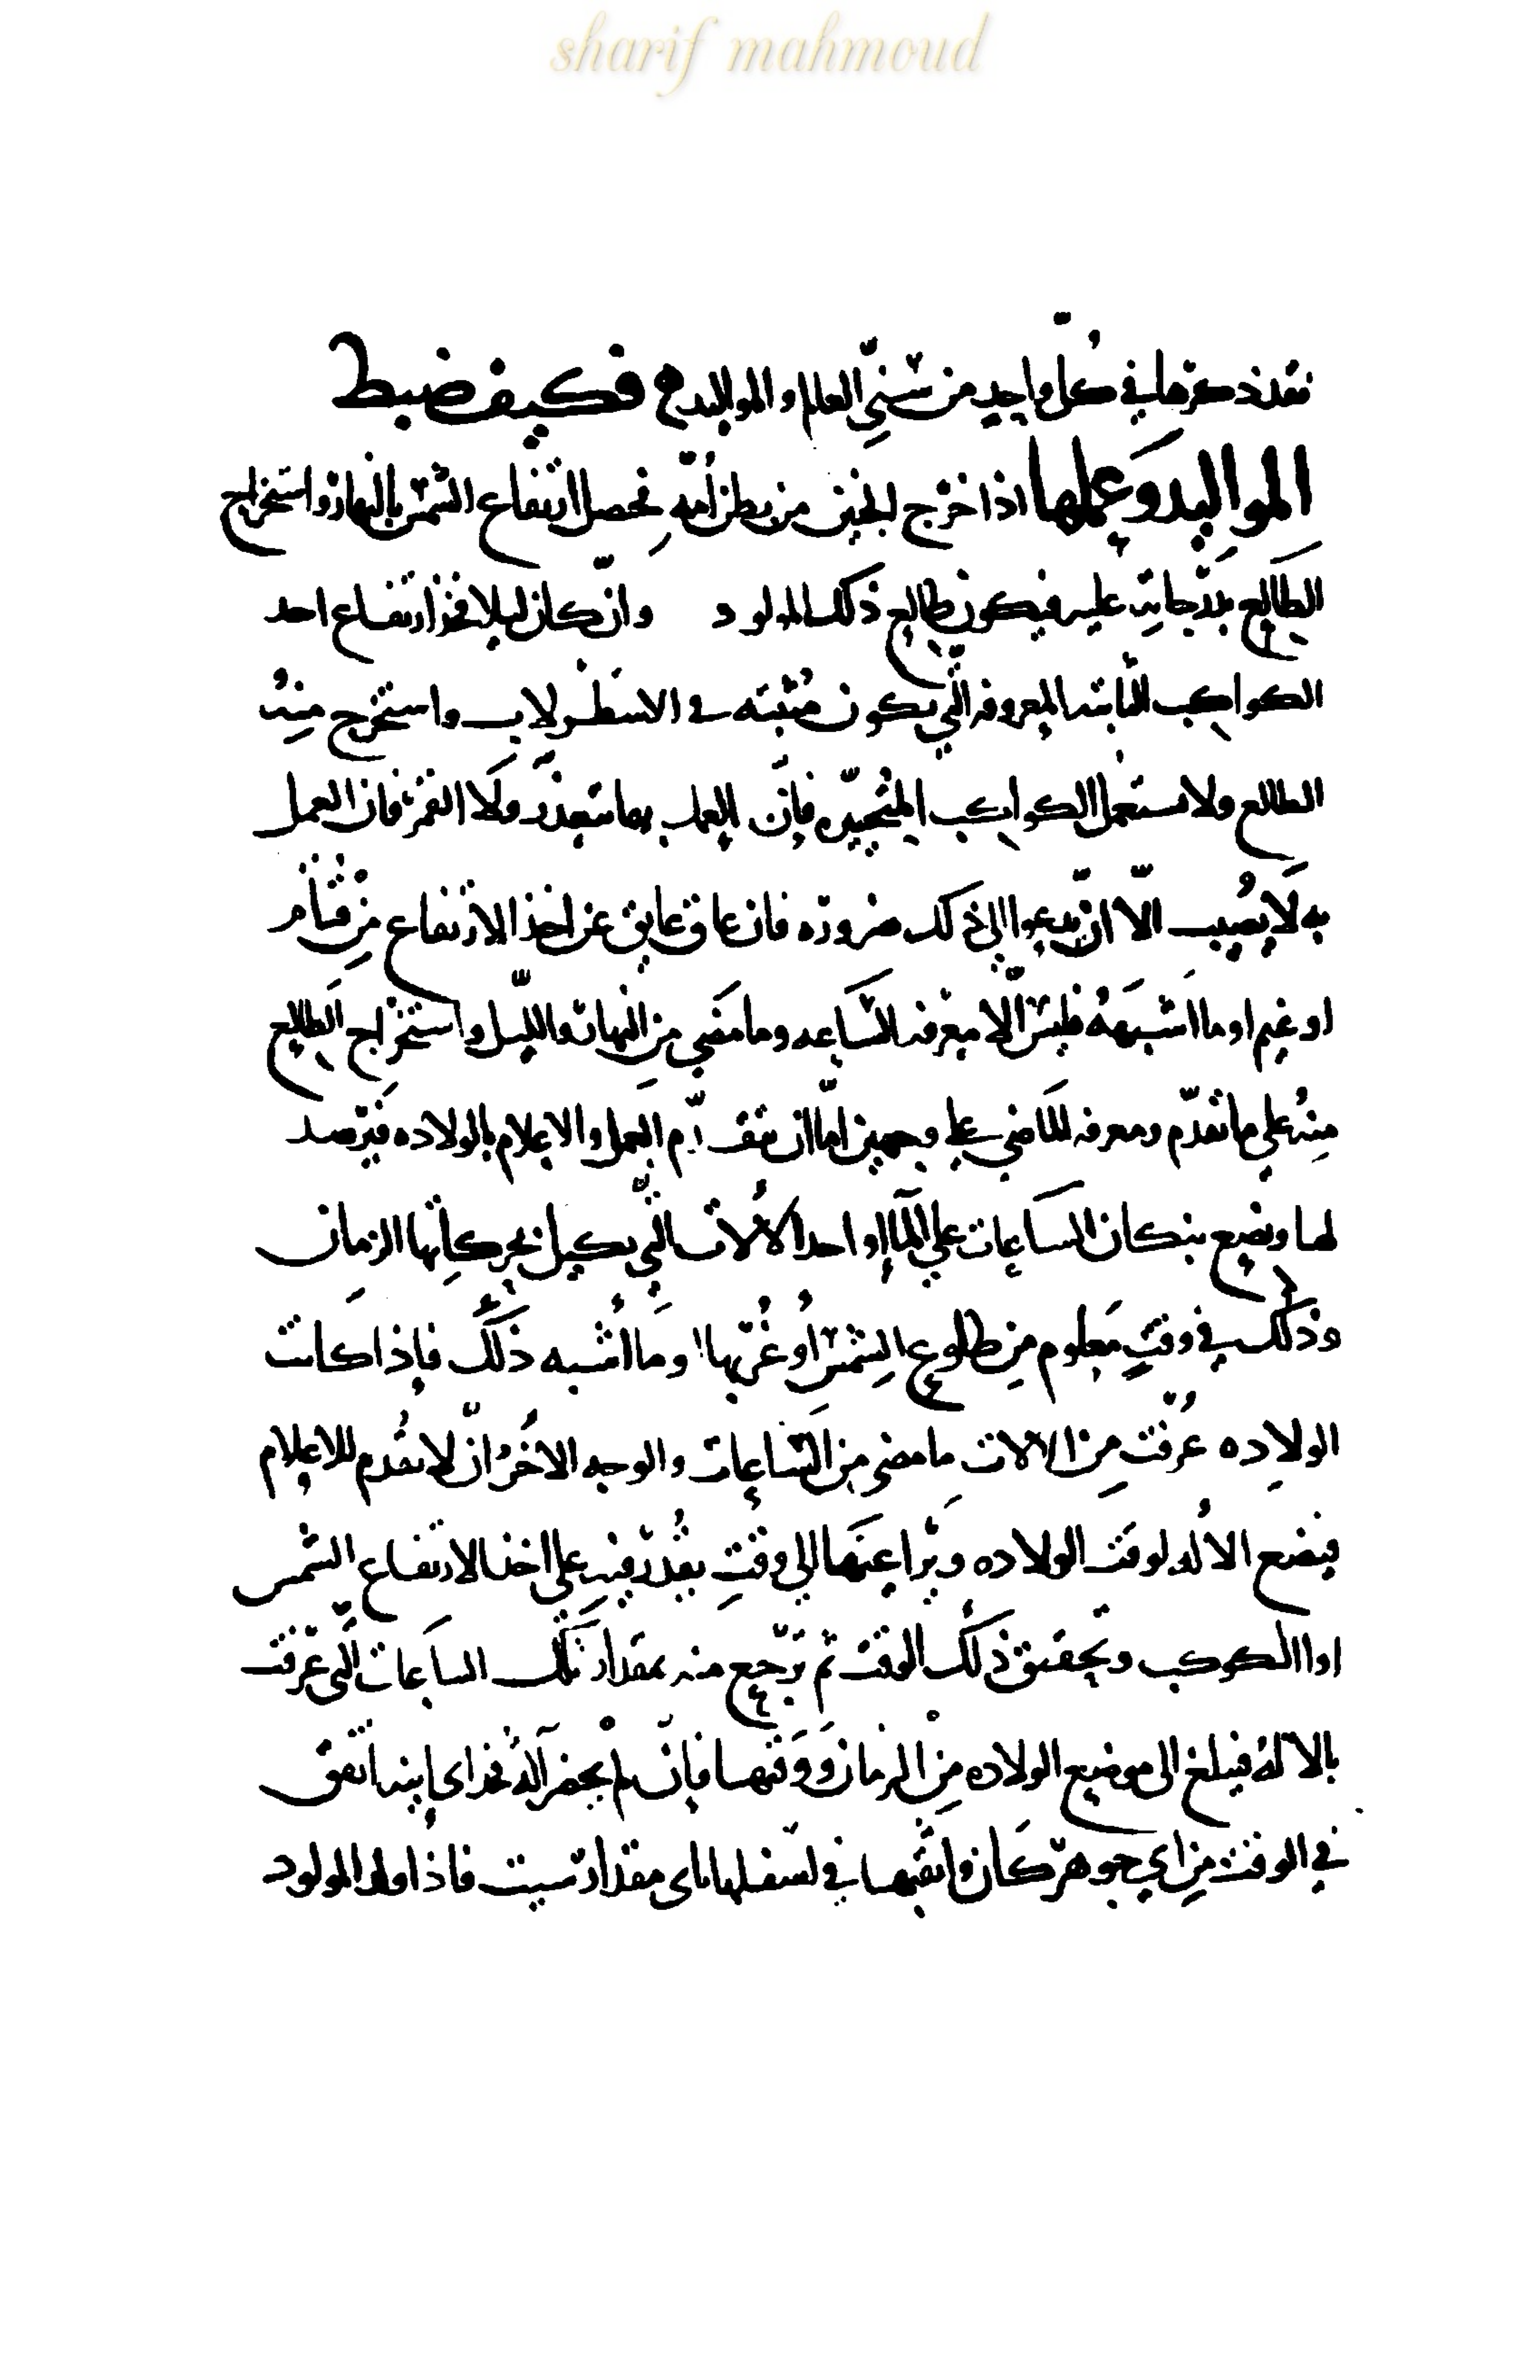 sharif mahmoud
تقدر ذكرها في كل واحد من سني العالم والمواليد فكيف ضبط
المواليد وعملها اذا خرج الجنين من بطن امه نحصل ارتفاع الشمس بالنهار واستخراج
الطالع بدرجاته عليه فيكون طالع ذلك المولود وان كان ليلا فخذ ارتفاع احد
الكواكب الثابته المعروفه التي يكون مثبته في الاسطرلاب واستخرج منه
الطالع ولا تستعمل الكواكب المتحيره فان العمل بها متعذر ولا القمر فان العمل
به لا يصيب الا ان يدعوا الي ذلك ضروره فان عاق عايق عن اخذ الارتفاع من قتام
او غيم او ما اشبهه فليس الا معرفه الساعه وما مضي من النهار والليل واستخراج الطالع
منه علي ما تقدم ومعرفه الماضي علي وجهين اما ان يتقدم العمل والاعلام بالولاده فيترصد
لها ويضع بنكان الساعات علي الماء او احد الالات التي يكيل بحركاتها الزمان
وذلك في وقت معلوم من طلوع الشمس او غربها وما اشبه ذلك فاذا كانت
الولاده عرفت من الالات ما مضي من الساعات والوجه الاخر ان لا تقدم للاعلام
فيضع الاله لوقت الولاده ويراعيها الي وقت يقدر فيه علي اخذ الارتفاع الشمس
او الكوكب ويحقق ذلك الوقت ثم ترجع منه بمقدار تلك الساعات التي عرفت
بالاله فيبلغ الى موضع الولاده من الزمان ووقتها فان لم يحضر آلة فخذ اي إنيه اتفق
في الوقت من اي جوهر كان واثقبها في اسفلها باي مقدار شيت فاذا ولد المولود